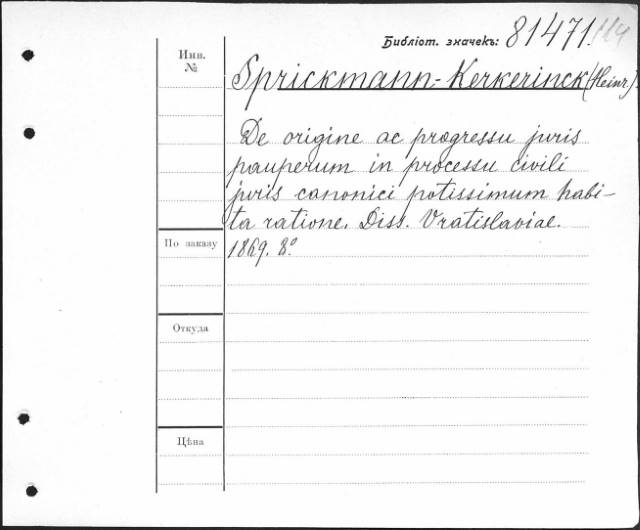 Библіот. значекъ: 81471.
Инв.
№
Sprickmann-Kerkerinck (Heinr.).
De origine ac progressu juris
pauperum in processu civili
juris canonici potissimum habi-
ta ratione. Diss. Vratislaviae.
По заказу
1869. 8°
Откуда
Цѣна